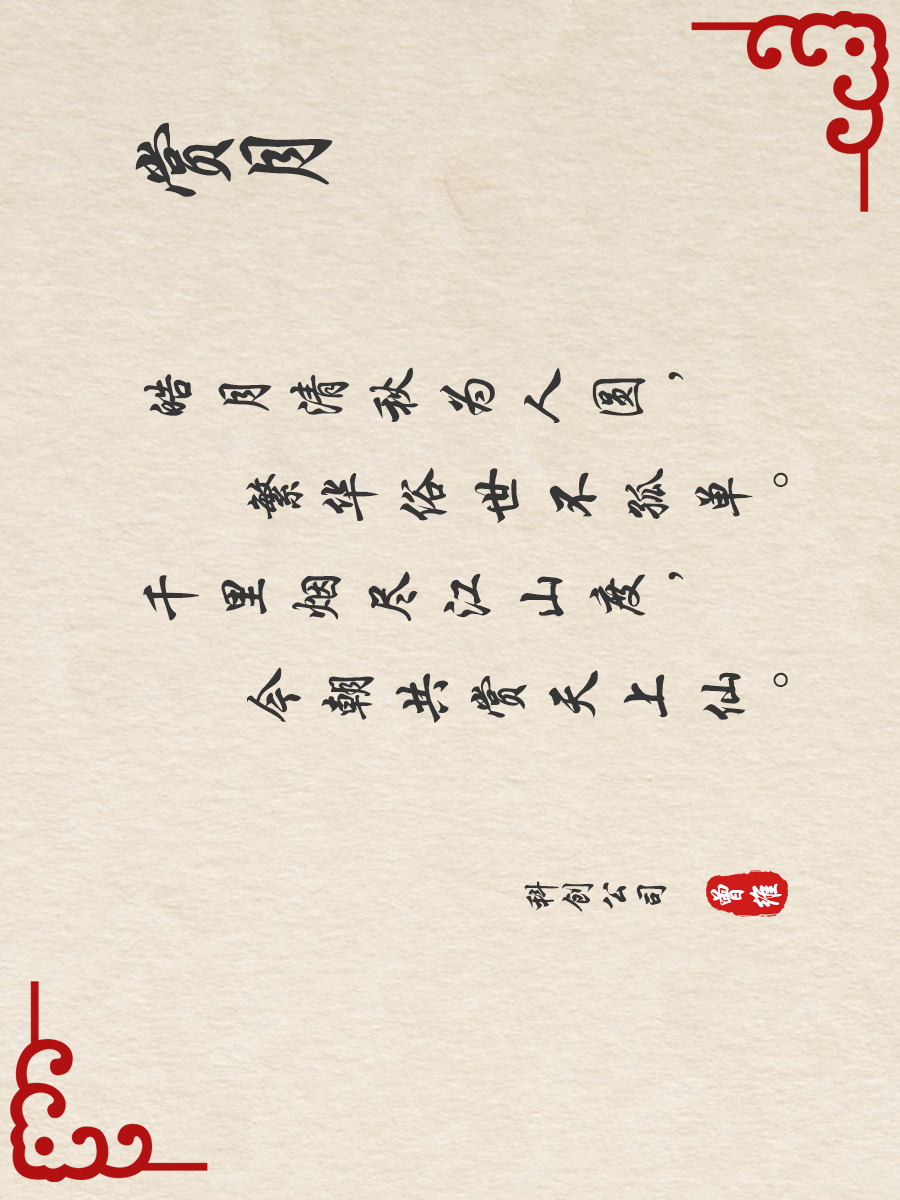 赏月
皓月清秋为人圆，
繁华俗世不孤单。
千里烟尽江山度，
今朝共赏天上仙。
科创公司
曾维